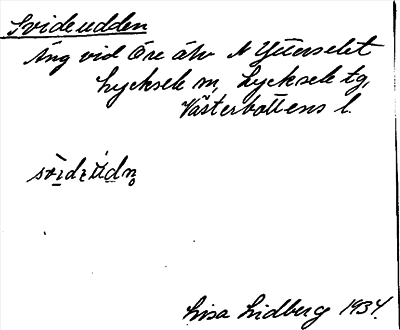 Svideudden
Äng vid Öre älv N Ytterselet
Lycksele sn, Lycksele tg,
Västerbottens l.
Lisa Lidberg 1934.